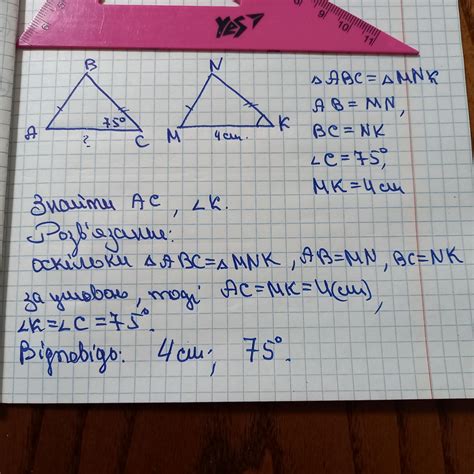 YES
6 7 8 9 10 11
B
N
A
75°
C
?
M
4 см.
K
△ABC = △MNK
AB = MN,
BC = NK
∠C = 75°,
MK = 4 см
Знайти AC, ∠K.
Розв'язание:
оскільки △ABC = △MNK, AB=MN, BC=NK
за умовою, тоді AC=MK=4(см),
∠K=∠C=75°.
Відповідь: 4 см; 75°.